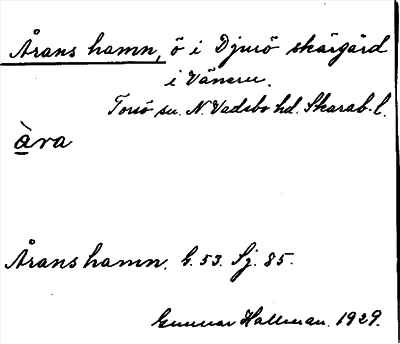 Årans hamn, ö i Djurö skärgård
i Vänern.
Torsö sn. N. Vadsbo hd. Skarab. l.
àra
Årans hamn. G. 53. Sj. 85.
Gunnar Hallman. 1929.